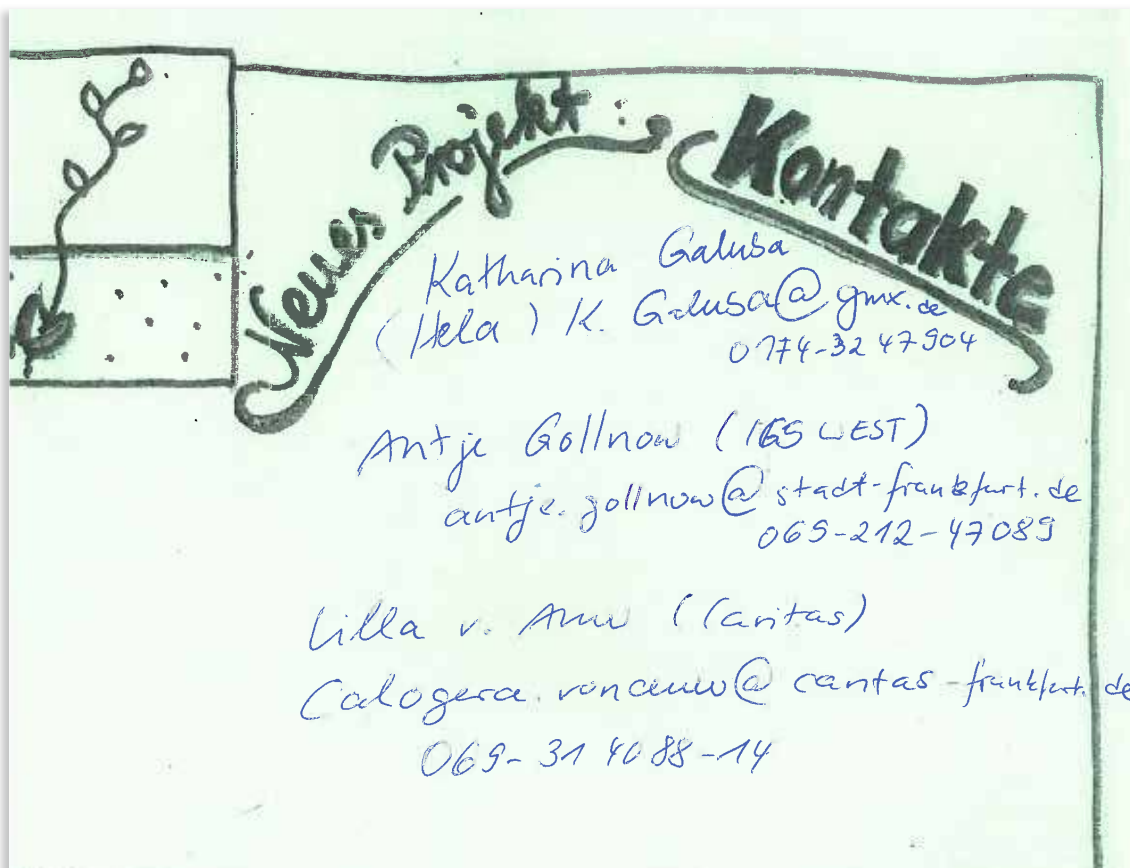 Neues Projekt :
Kontakte
Katharina Galusa
(Hela) K. Galusa@gmx.de
0174-3247904
Antje Gollnow (IGS WEST)
antje.gollnow@stadt-frankfurt.de
069-212-47089
Lilla v. Auw (Caritas)
Calogera.vonauw@caritas-frankfurt.de
069-31 40 88-14